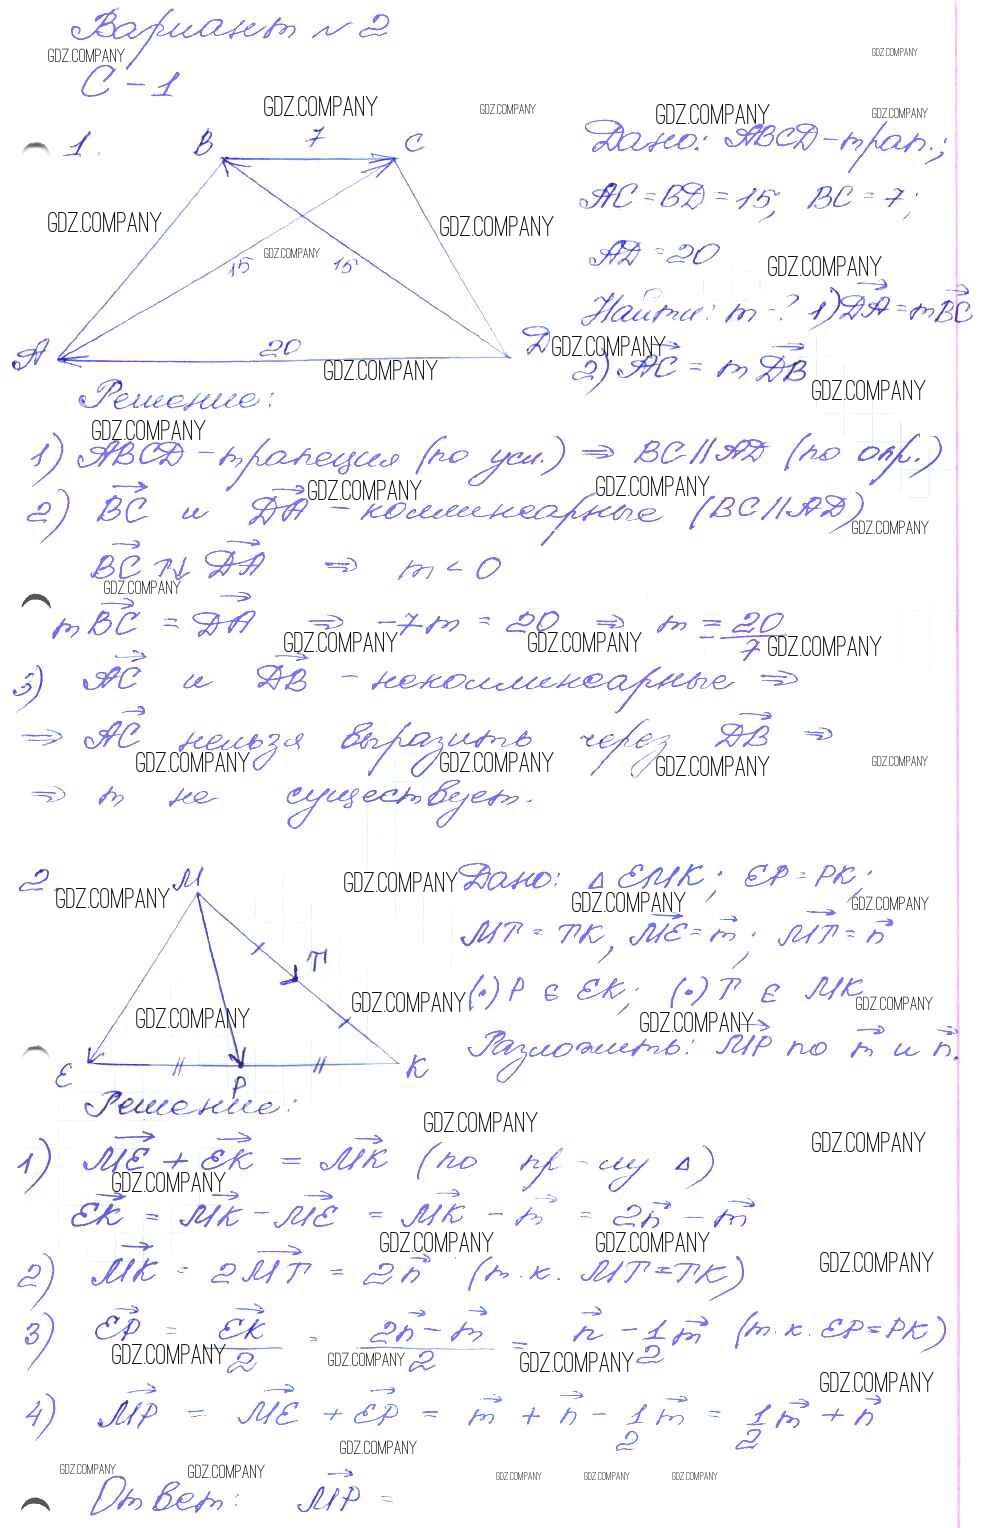 Вариант №2
С-1
1.
B 7 C
15 15
A 20 D
Дано: ABCD - трап.;
AC = BD = 15, BC = 7;
AD = 20
Найти: m - ? 1) DA = mBC
2) AC = m DB
Решение:
1) ABCD - трапеция (по усл.) => BC || AD (по опр.)
2) BC и DA - коллинеарные (BC || AD)
BC ↑↓ DA => m < 0
mBC = DA => -7m = 20 => m = -20/7
3) AC и DB - неколлинеарные =>
=> AC нельзя выразить через DB =>
=> m не существует.
2
M
T
E P K
Дано: △ EMK; EP = PK;
MT = TK, ME = m; MT = n
(·) P ∈ EK; (·) T ∈ MK
Разложить: MP по m и n.
Решение:
1) ME + EK = MK (по пр-лу △)
EK = MK - ME = MK - m = 2n - m
2) MK = 2MT = 2n (т.к. MT = TK)
3) EP = EK/2 = 2n - m/2 = n - 1/2 m (т.к. EP = PK)
4) MP = ME + EP = m + n - 1/2 m = 1/2 m + n
Ответ: MP =
GDZ.COMPANY